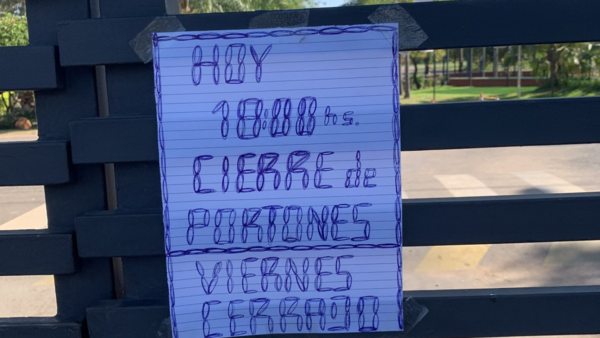 HOY
18:00 hs.
CIERRE de
PORTONES
VIERNES
CERRADO